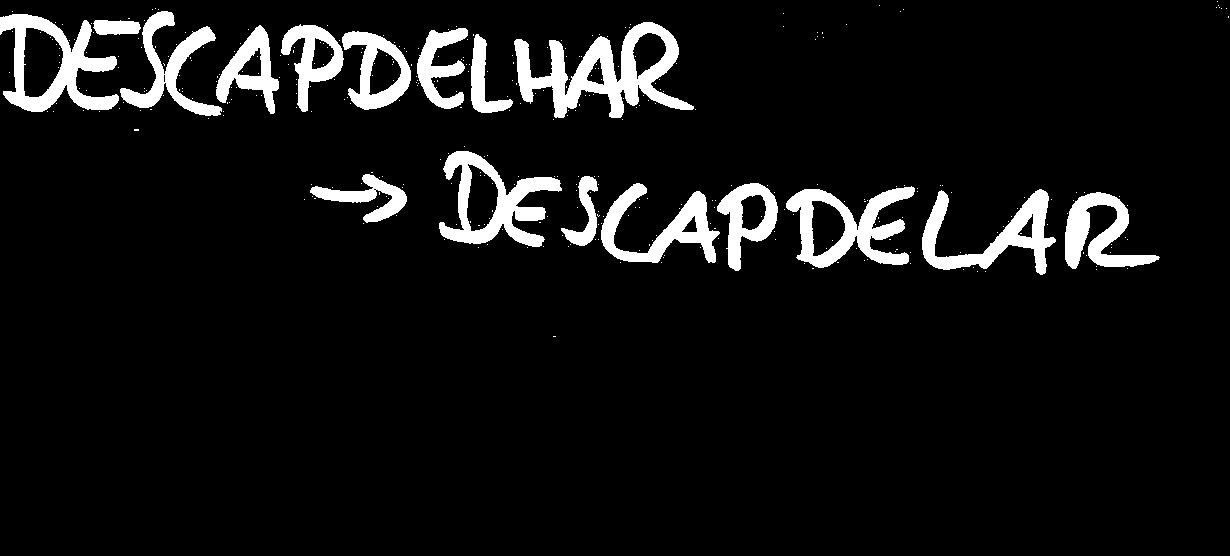 DESCAPDELHAR
→ DESCAPDELAR